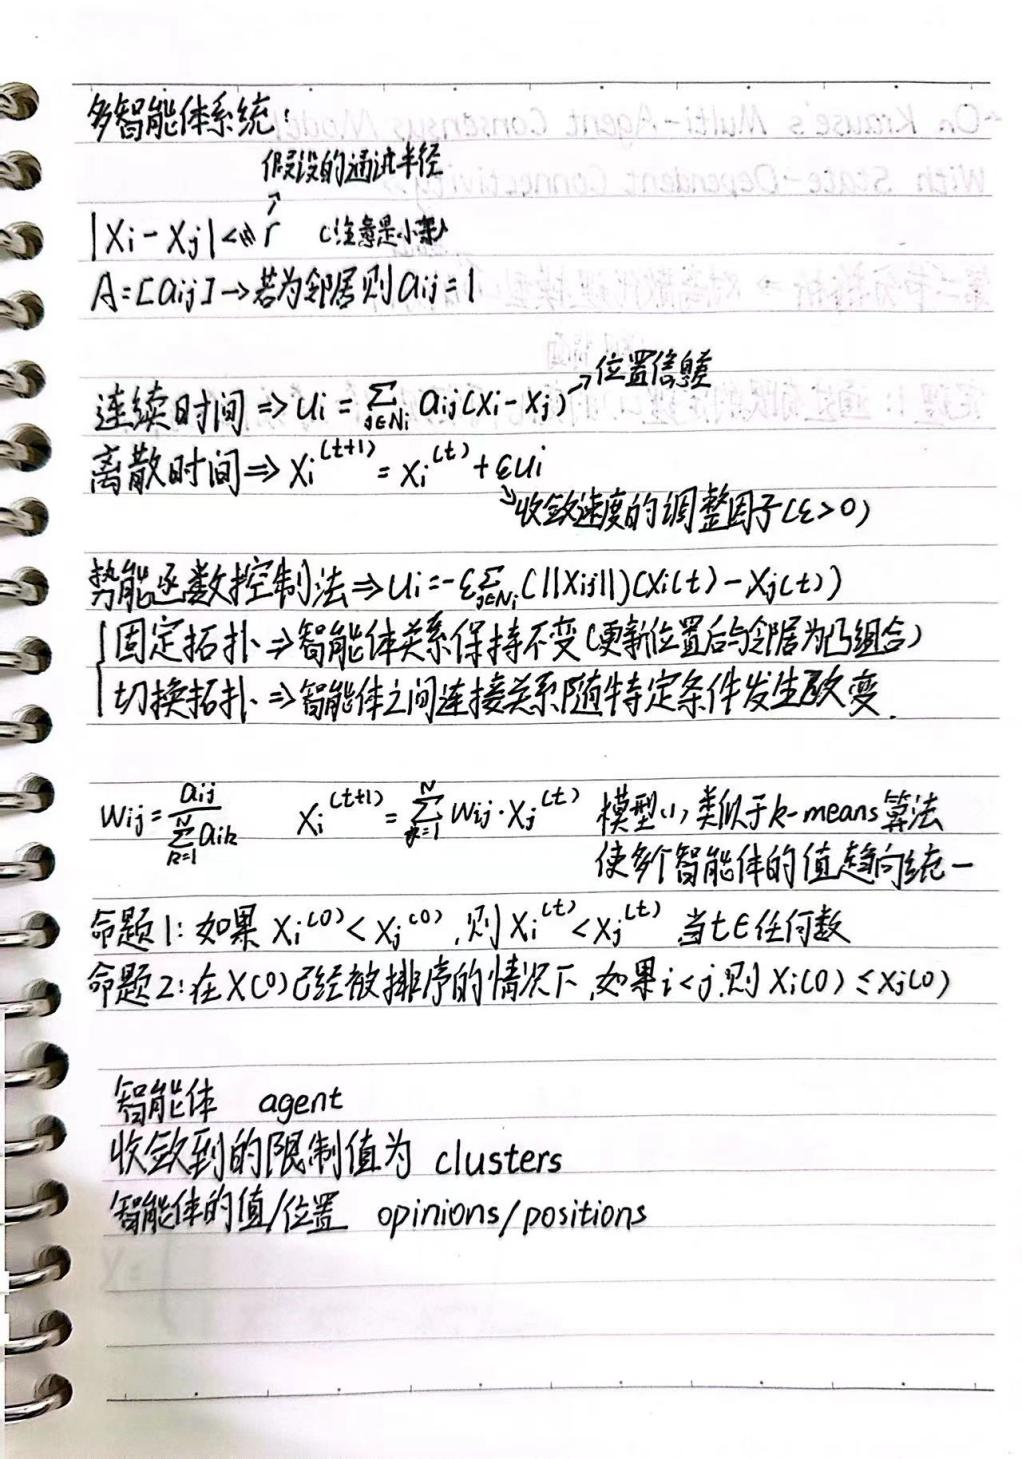 多智能体系统:
假设的通讯半径
|Xi - Xj| < r (注意是小于)
A = [aij] → 若为邻居则 aij = 1
连续时间 ⇒ ui = Σ_{j∈Ni} aij (xi - xj) → 位置信息差
离散时间 ⇒ Xi^(t+1) = Xi^(t) + εui
收敛速度的调整因子 (ε > 0)
势能函数控制法 ⇒ ui = -ε Σ_{j∈Ni} (||Xij||)(Xi(t) - Xj(t))
固定拓扑 ⇒ 智能体关系保持不变 (更新位置后与邻居为凸组合)
切换拓扑 ⇒ 智能体之间连接关系随特定条件发生改变.
Wij = aij / Σ_{k=1}^{N} aik Xi^(t+1) = Σ_{=1}^{N} Wij · Xj^(t) 模型(1) 类似于 k-means 算法
使多个智能体的值趋向统一
命题1: 如果 Xi^(0) < Xj^(0), 则 Xi^(t) < Xj^(t) 当t∈任何数
命题2: 在X(0)已经被排序的情况下, 如果 i < j, 则 Xi(0) ≤ Xj(0)
智能体 agent
收敛到的限制值为 clusters
智能体的值/位置 opinions/positions